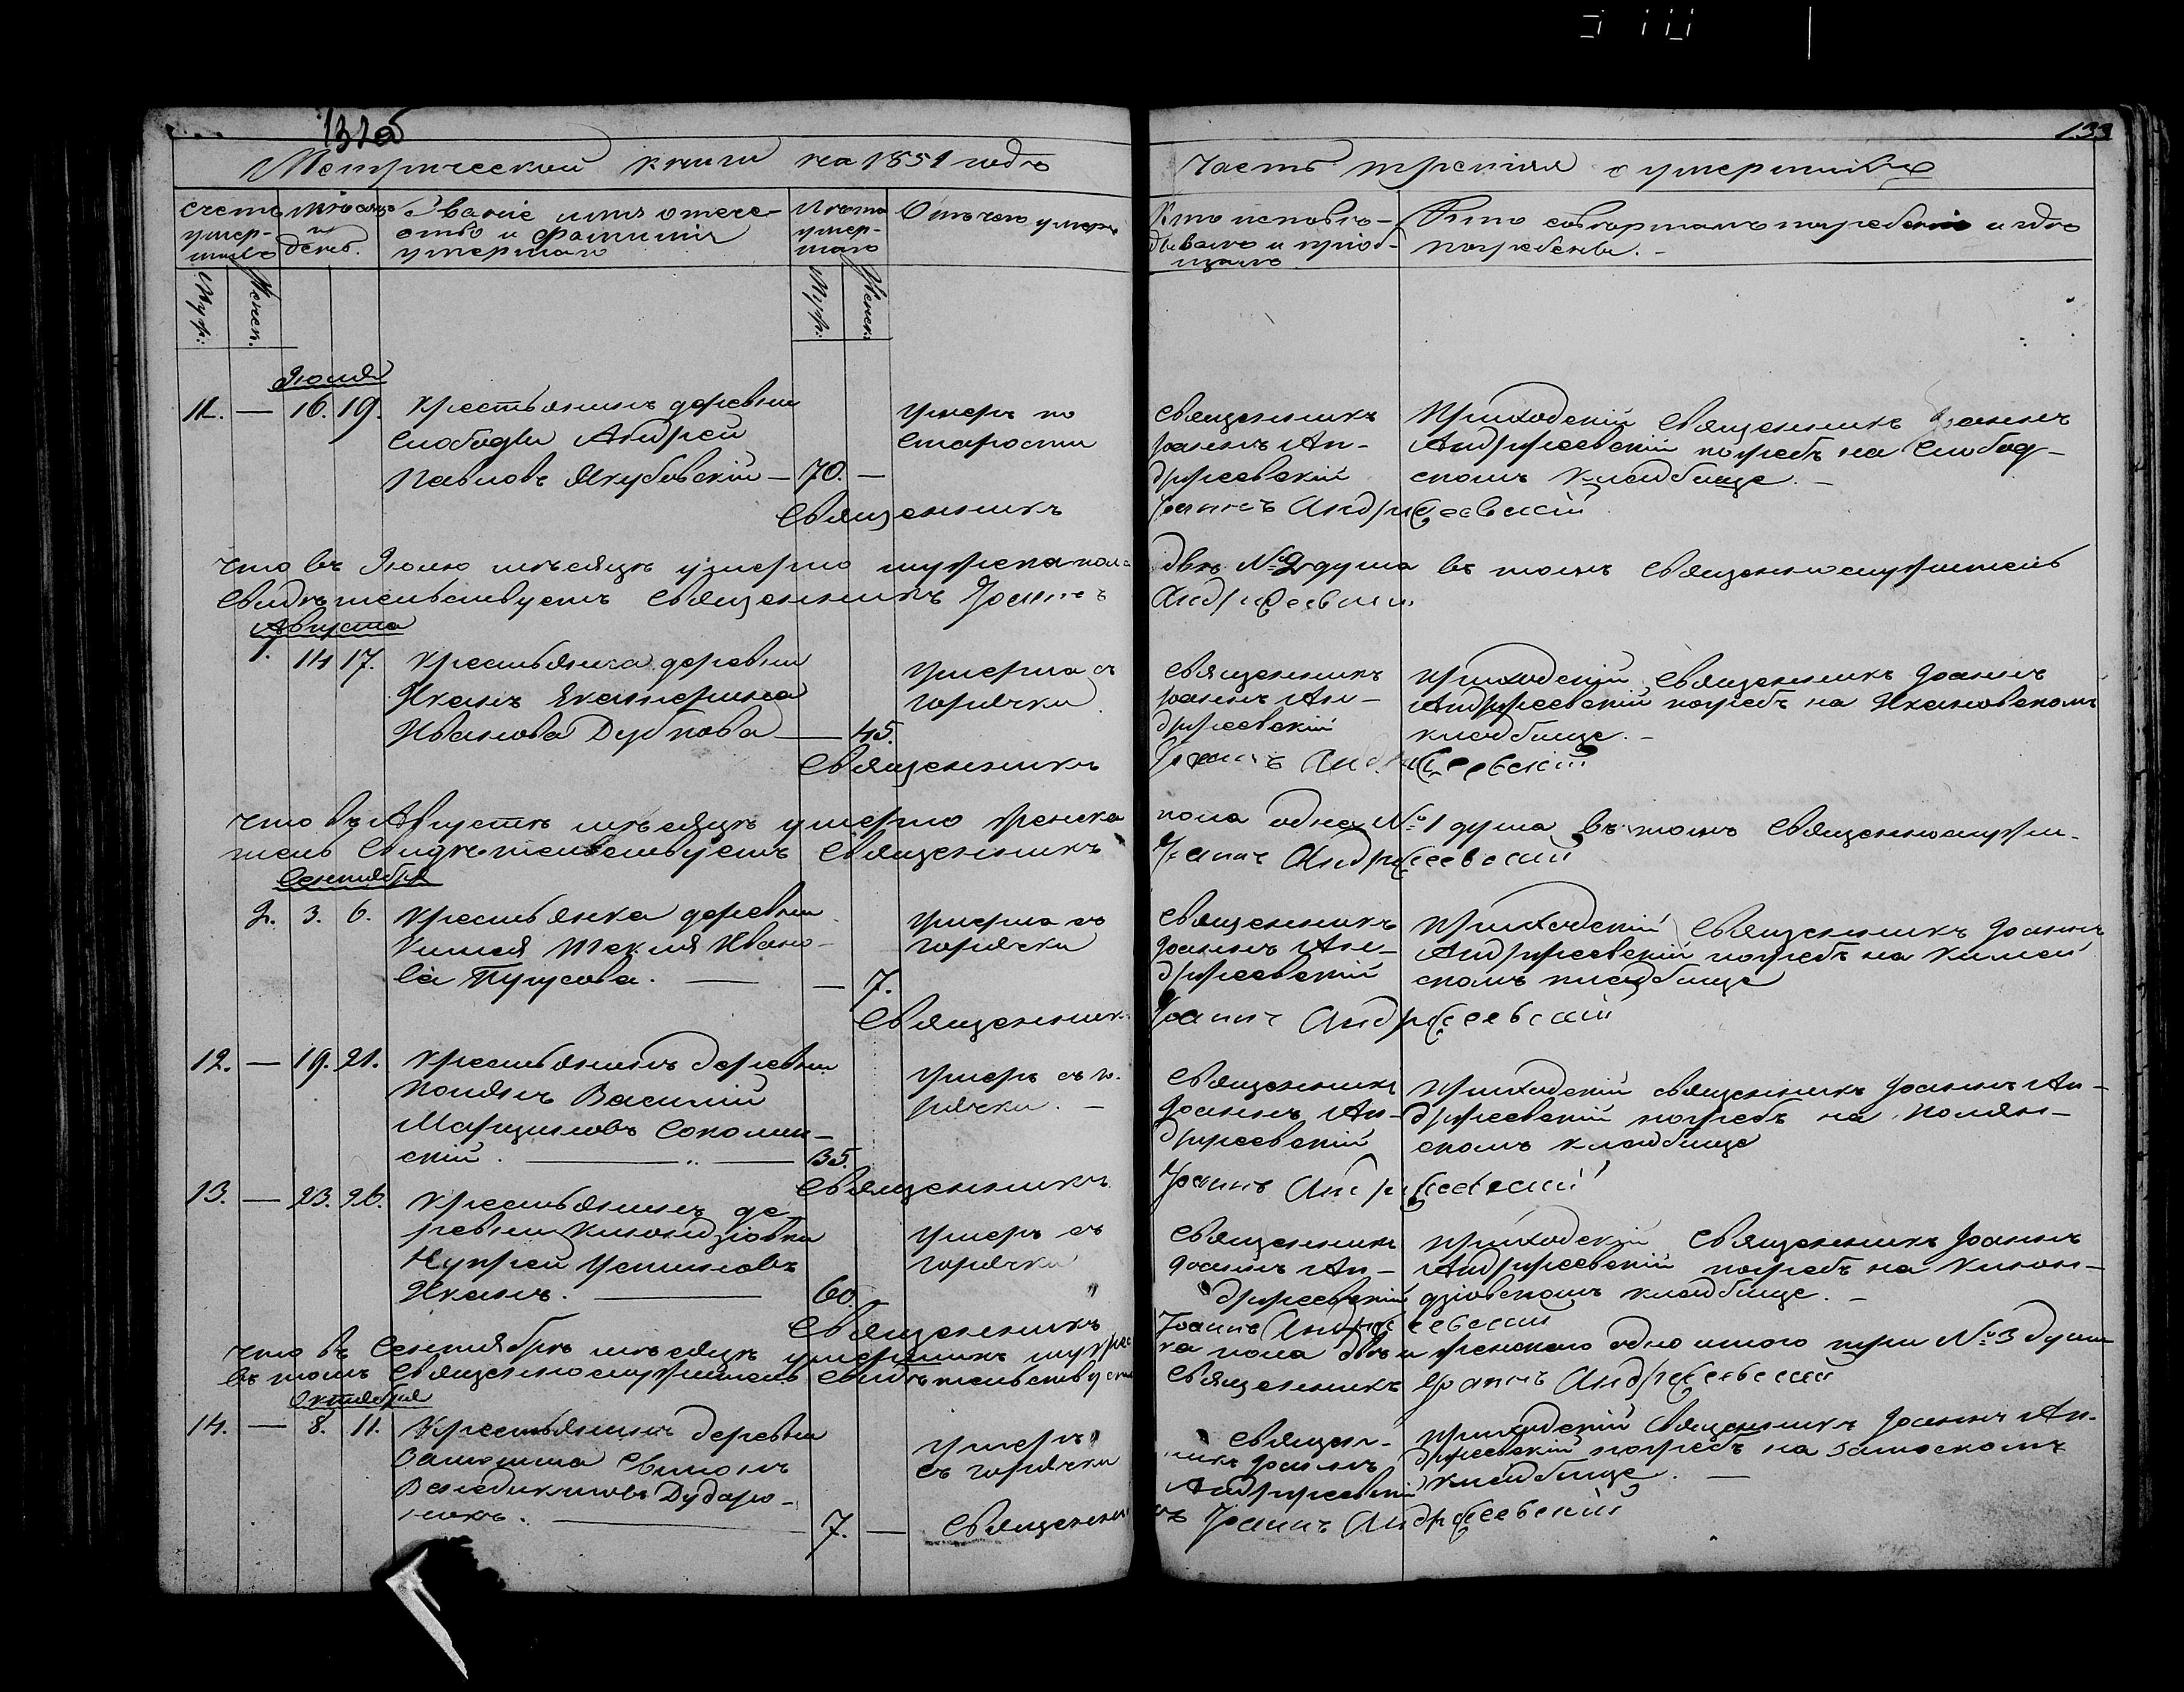 132об
133
Метрической книги на 1851 годъ
Часть третія о умершихъ
Счетъ умер-шихъ
Мѣсяцъ и день.
Званіе имя отече-
ство и фамилія
умершаго
Лѣта умер-шаго
Отъ чего умеръ
Кто исповѣ-
дывалъ и пріоб-
щалъ
Кто совершалъ погребеніе и гдѣ
погребены. -
Муж:
Женск.
Муж:
Женск.
Іюля
11. — 16. 19. Крестьянинъ деревни
Слободы Андрей
Павловъ Якубовскій — 70. —
Умеръ по
старости
Священникъ
Іоаннъ Ан-
држеевскій
Приходскій Священникъ Іоаннъ
Андржеевскій погребъ на Слобод-
скомъ кладбище. -
Священникъ Іоаннъ Андржеевскій
Что въ Іюлѣ мѣсяцѣ умерло мужеска пола двѣ № 2 душа въ томъ Священнослужитель
Свидѣтельствуетъ Священникъ Іоаннъ Андржеевскій
Августа
1. 14 17. Крестьянка деревни
Иканъ Екатерина
Иванова Дубкова — 45.
Умерла съ
горячки
Священникъ
Іоаннъ Ан-
држеевскій
Приходскій Священникъ Іоаннъ
Андржеевскій погребъ на Икановскомъ
кладбище. -
Священникъ Іоаннъ Андржеевскій
Что въ Августѣ мѣсяцѣ умерло женска пола одна № 1 душа въ томъ Священнослужи-
тель Свидѣтельствуетъ Священникъ Іоаннъ Андржеевскій
Сентября
2. 3. 6. Крестьянка деревни
Текля Ивано-
ва — 7.
Умерла съ
горячки
Священникъ
Іоаннъ Ан-
држеевскій
Приходскій Священникъ Іоаннъ
Андржеевскій погребъ на
скомъ кладбище
Священникъ Іоаннъ Андржеевскій
12. — 19. 21. Крестьянинъ деревни
Полянъ Василій
Марциновъ Соколин-
скій. — 35.
Умеръ съ го-
рячки. -
Священникъ
Іоаннъ Ан-
држеевскій
Приходскій священникъ Іоаннъ Ан-
држеевскій погребъ на Полян-
скомъ кладбище
Священникъ Іоаннъ Андржеевскій
13. — 23. 26. Крестьянинъ де
ревни
Нупрей Устиновъ
Иканъ. — 60.
Умеръ съ
горячки
Священникъ
Іоаннъ Ан-
држеевскій
Приходскій Священникъ Іоаннъ
Андржеевскій погребъ на
кладбище. -
Священникъ Іоаннъ Андржеевскій
Что въ Сентябрѣ мѣсяцѣ умершихъ мужес ка пола двѣ и женского одно итого три № 3 души
въ томъ Священнослужитель Свидѣтельствуетъ Священникъ Іоаннъ Андржеевскій
Октября
14. — 8. 11. Крестьянинъ деревни
Симонъ
Венедиктовъ Дударо-
нокъ. — 7. —
Умеръ
съ горячки
Священ-
никъ Іоаннъ
Андржеевскій
Приходскій Священникъ Іоаннъ Ан-
држеевскій погребъ на
кладбище. —
Священникъ Іоаннъ Андржеевскій